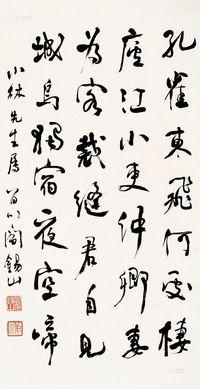 孔雀東飛何處棲
廬江小吏仲卿妻
為客裁縫君自見
城烏獨宿夜空啼
小林先生屬 百川閻錫山